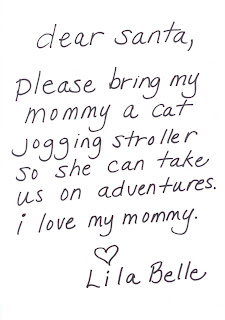 dear santa,
please bring my
mommy a cat
jogging stroller
so she can take
us on adventures.
i love my mommy.
♡
Lila Belle